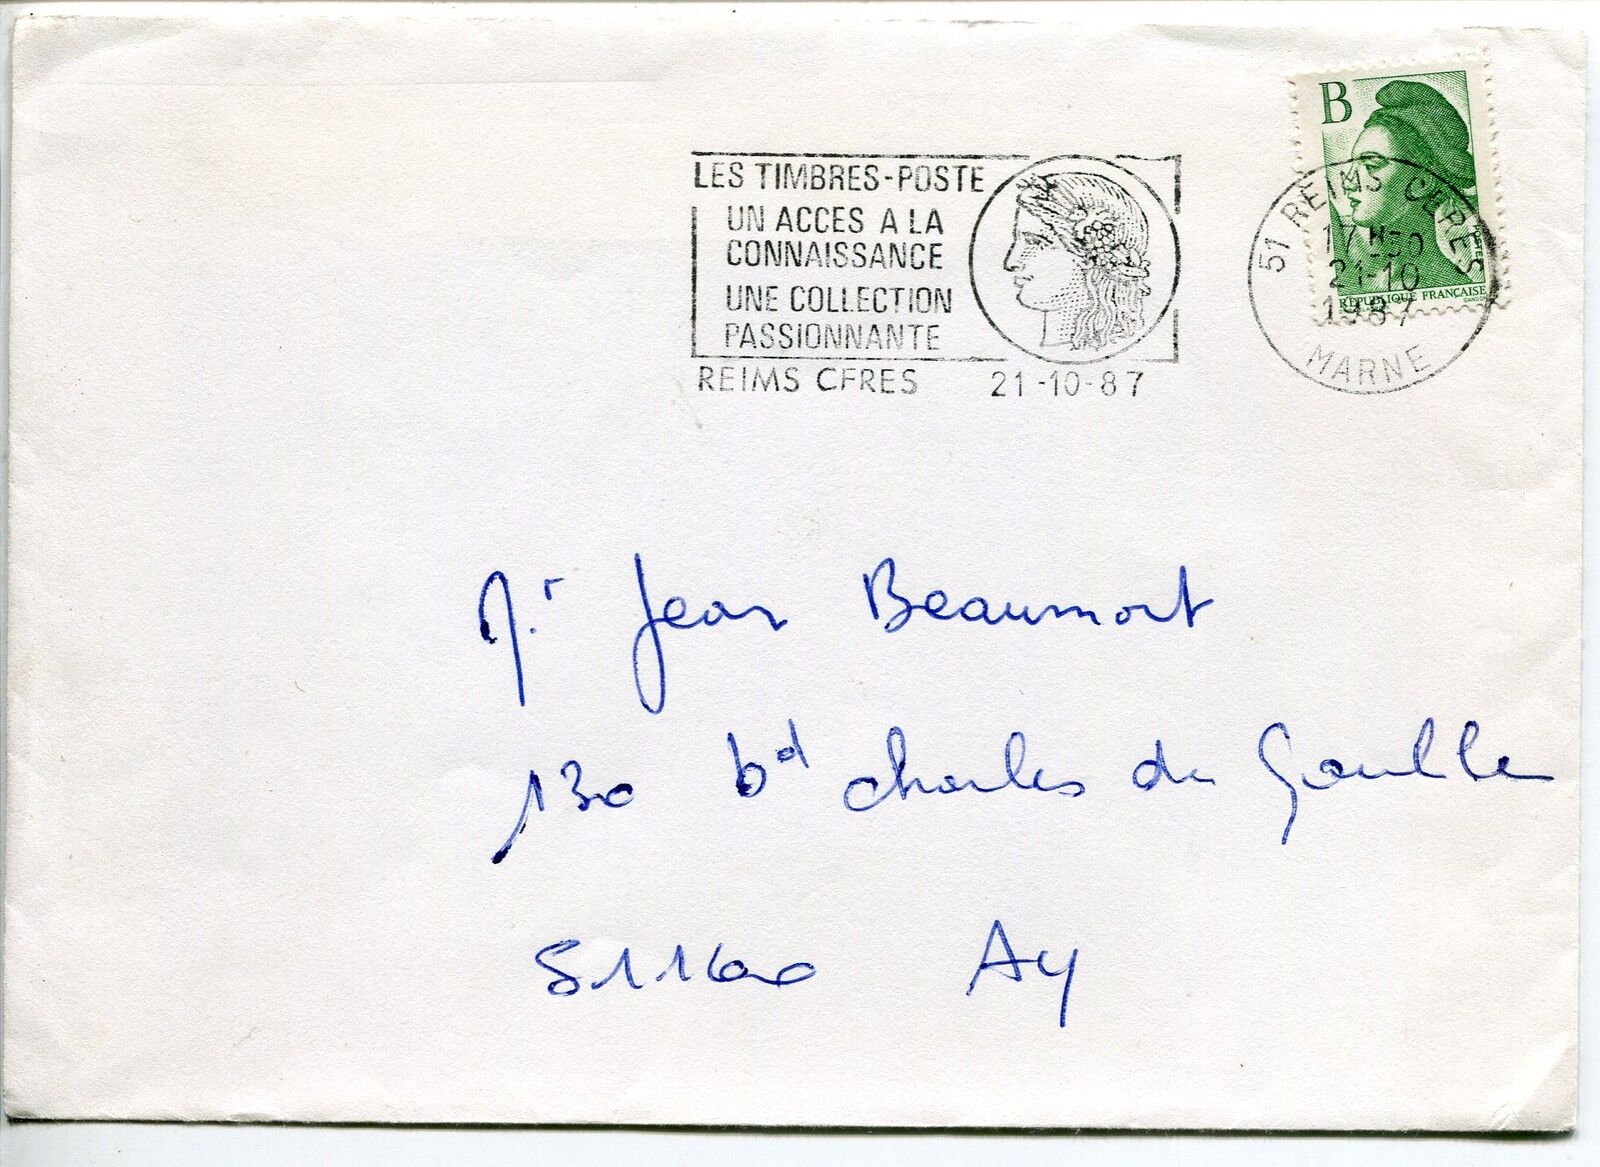 B
POSTES
RÉPUBLIQUE FRANÇAISE
GANDON
LES TIMBRES-POSTE
UN ACCES A LA
CONNAISSANCE
UNE COLLECTION
PASSIONNANTE
REIMS CERES 21-10-87
51 REIMS CERES
17 H 30
21-10
1987
MARNE
Mr Jean Beaumont
130 bd Charles de Gaulle
51160 Ay